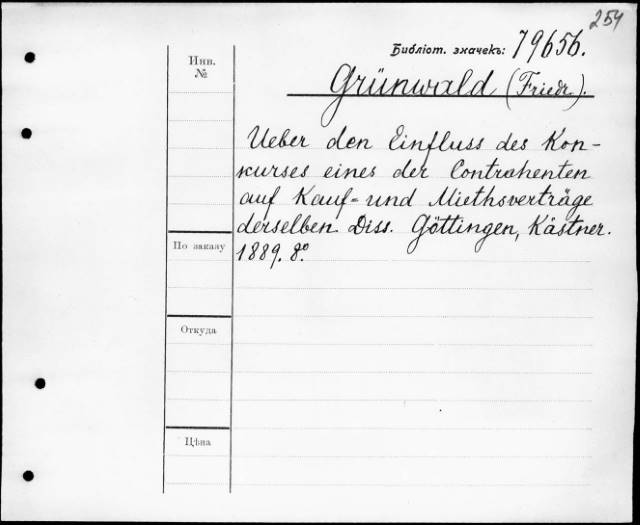 254
Библіот. значекъ: 79656.
Инв.
№
Grünwald (Friedr.).
Ueber den Einfluss des Kon-
kurses eines der Contrahenten
auf Kauf- und Miethsverträge
derselben. Diss. Göttingen, Kästner.
1889. 8º.
По заказу
Откуда
Цѣна